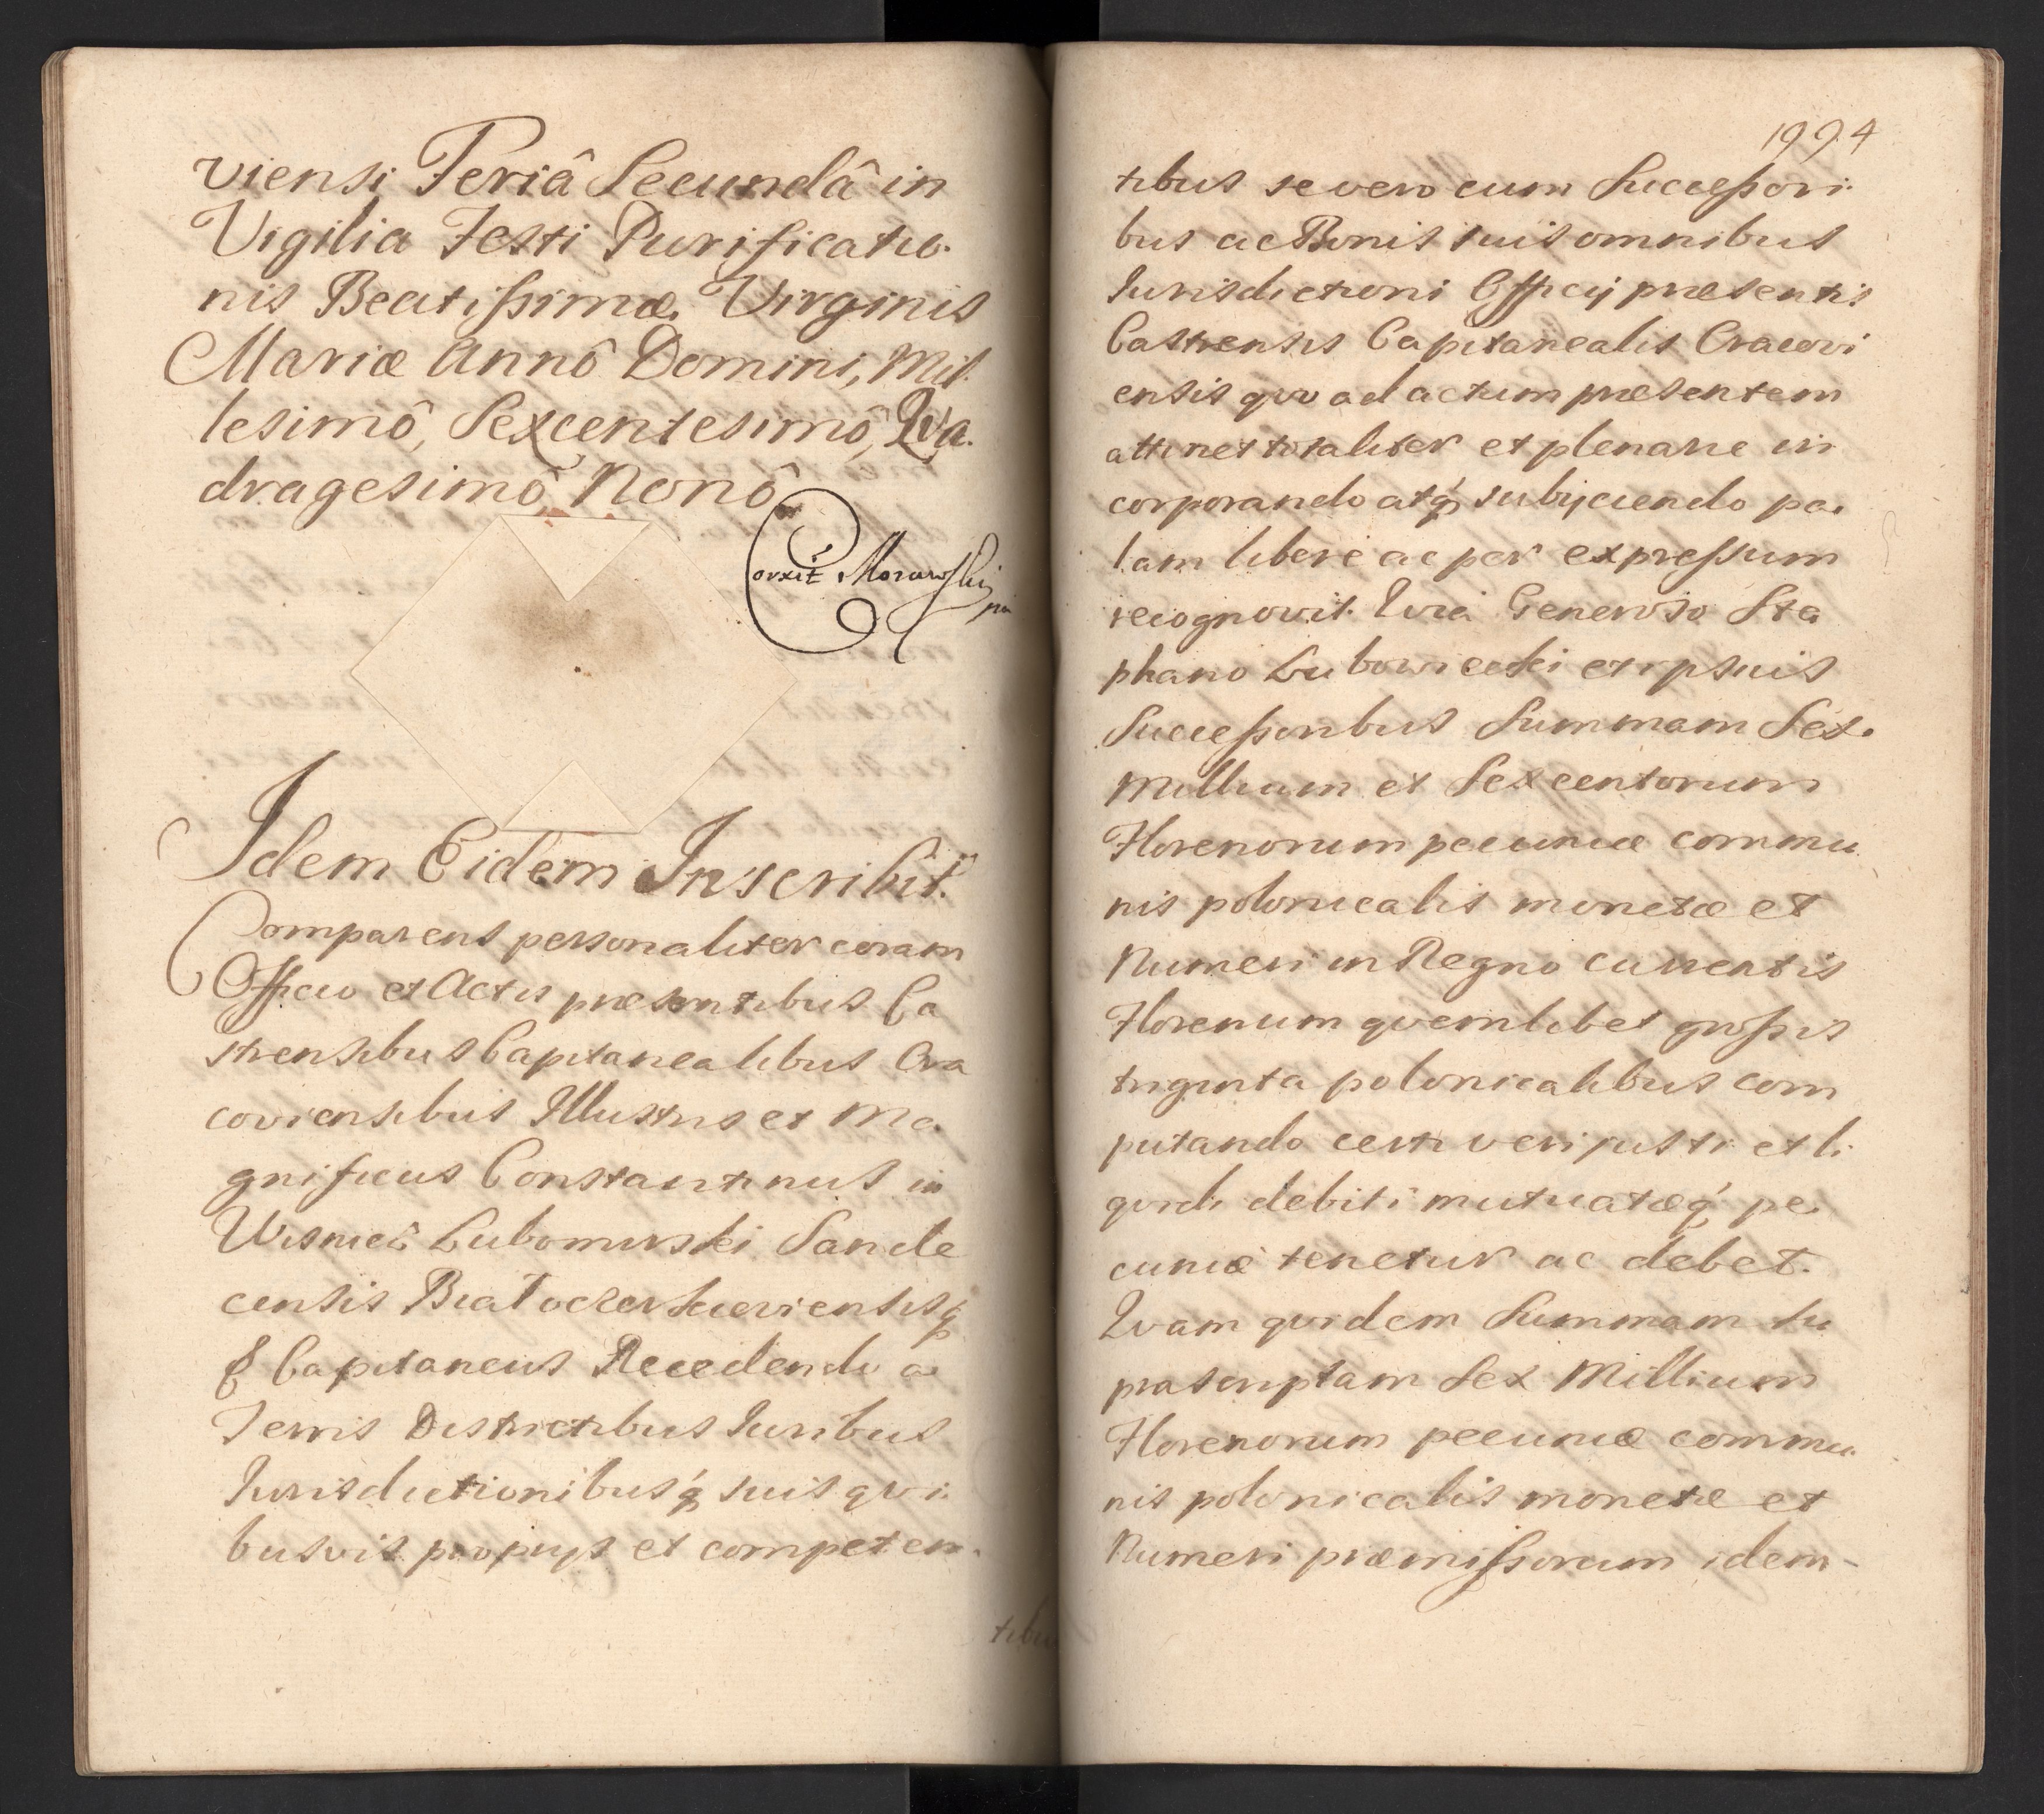 viensi Feriâ Secundâ in
Vigilia Festi Purificatio-
nis Beatissimæ Virginis
Mariæ Annô Domini, Mil-
lesimô, Sexcentesimô, Qva-
dragesimô Nonô
Correxit Morawski
Idem Eidem Inscribit.
Comparens personaliter coram
Officio et Actis præsentibus Ca
strensibus Capitanealibus Cra
coviensibus Illustris et Ma-
gnificus Constantinus in
Wisnicz Lubomirski Sande
censis
& Capitaneus Recedendo a
Terris Districtibus Iuribus
Iurisdictionibusq́ suis qvi-
busvis proprijs et competen-
tibus
1994
tibus se vero cum Successori-
bus ac Bonis suis omnibus
Iurisdictioni Officij præsentis
Castrensis Capitanealis Cracovi
ensis qvo ad actum præsentem
attinet totaliter et plenarie in
corporando atq́ subijciendo pa-
lam libere ac per expressum
recognovit. Qvia Generoso Ste
phano Lubowiecki et ipsius
Successoribus Summam Sex-
Millium et Sexcentorum
Florenorum pecuniæ commu-
nis polonicalis monetæ et
Numeri in Regno currentis
Florenum qvemlibet grossis
triginta polonicalibus com
putando certi veri justi et li-
qvidi debiti mutuatæq́ pe-
cuniæ tenetur ac debet.
Qvam qvidem Summam su
prascriptam Sex Millium
Florenorum pecuniæ commu-
nis polonicalis monetæ et
Numeri præmissorum idem-